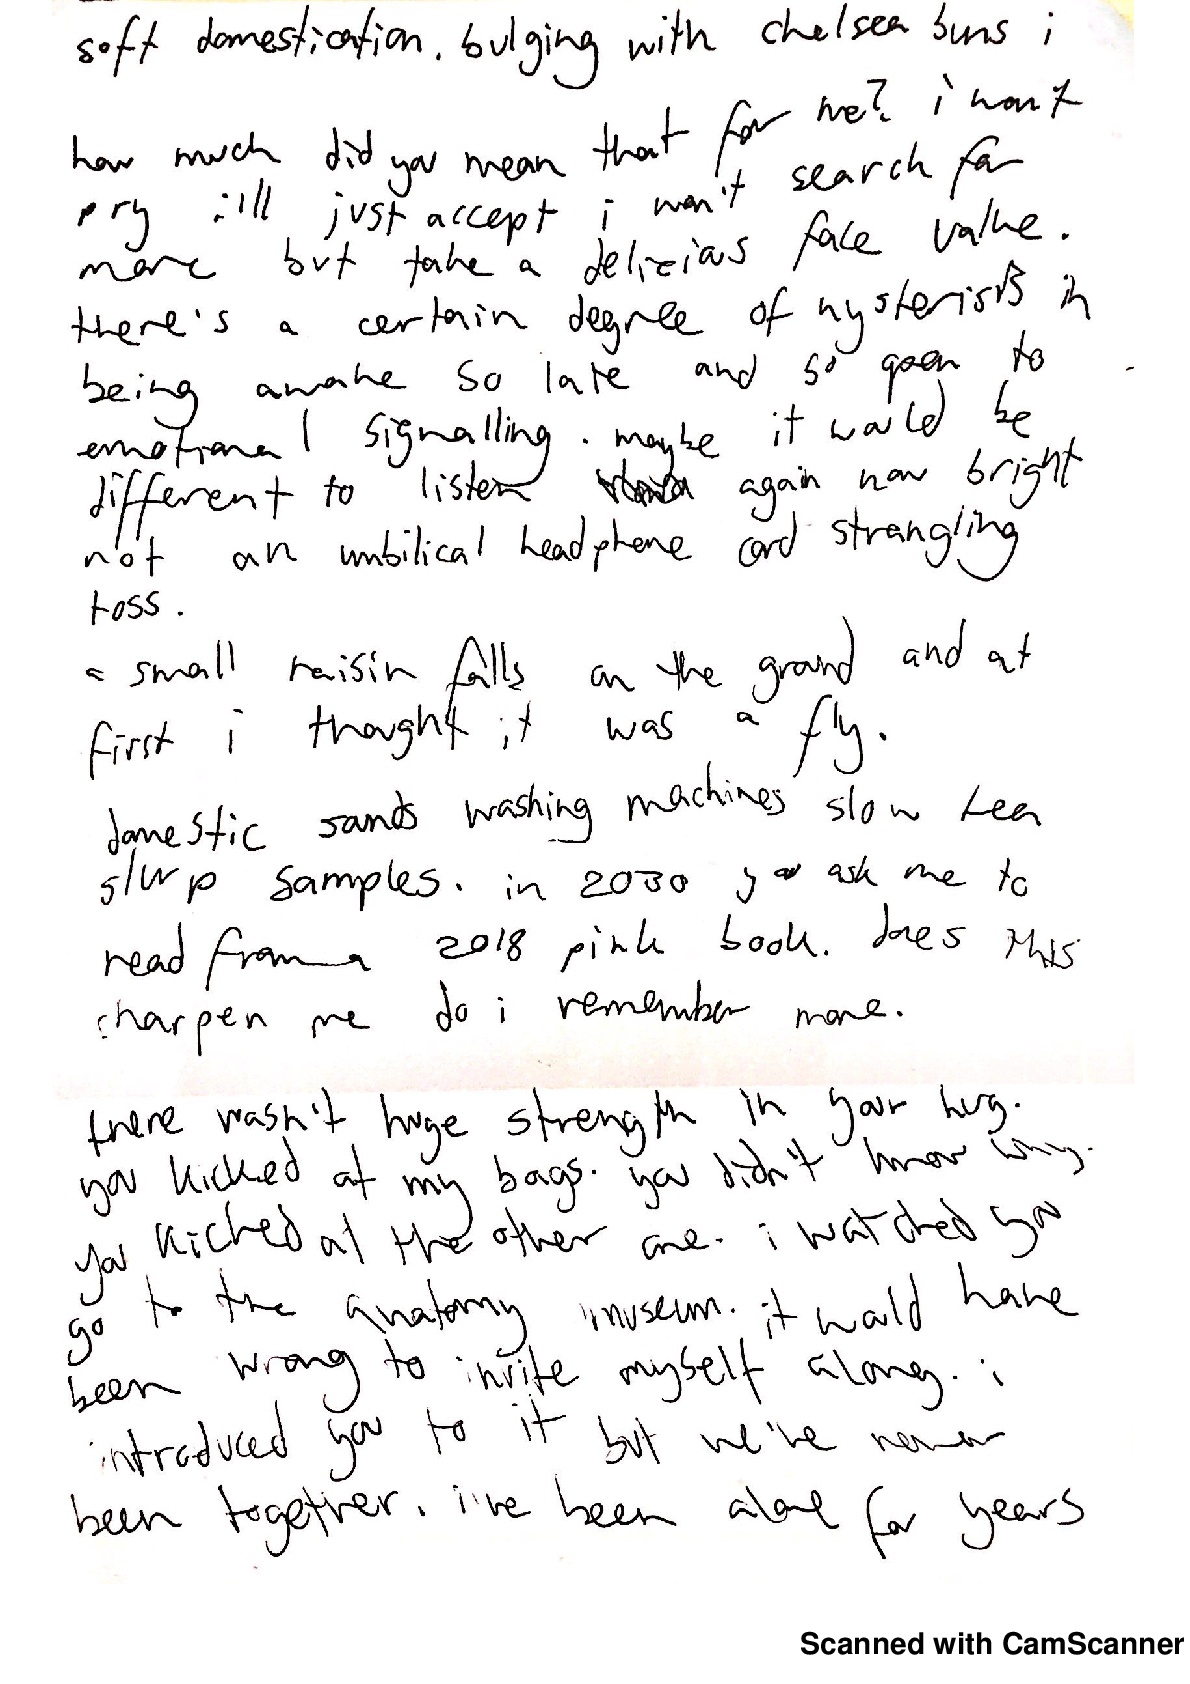 soft domestication. bulging with chelsea buns i
how much did you mean that for me? i won't
pry i'll just accept i won't search for
more but take a delicious face value.
there's a certain degree of in
being awake so late and so open to
emotional signalling. maybe it would be
different to listen again now bright
not an umbilical headphone cord strangling
toss.
a small raisin falls on the ground and at
first i thought it was a fly.
domestic sounds washing machines slow tea
slurp samples. in 2030 you ask me to
read from a 2018 pink book. does this
sharpen me do i remember more.
there wasn't huge strength in your hug.
you kicked at my bags. you didn't know why.
you kicked at the other one. i watched you
go to the anatomy museum. it would have
been wrong to invite myself along. i
introduced you to it but we've never
been together. i've been alone for years
Scanned with CamScanner